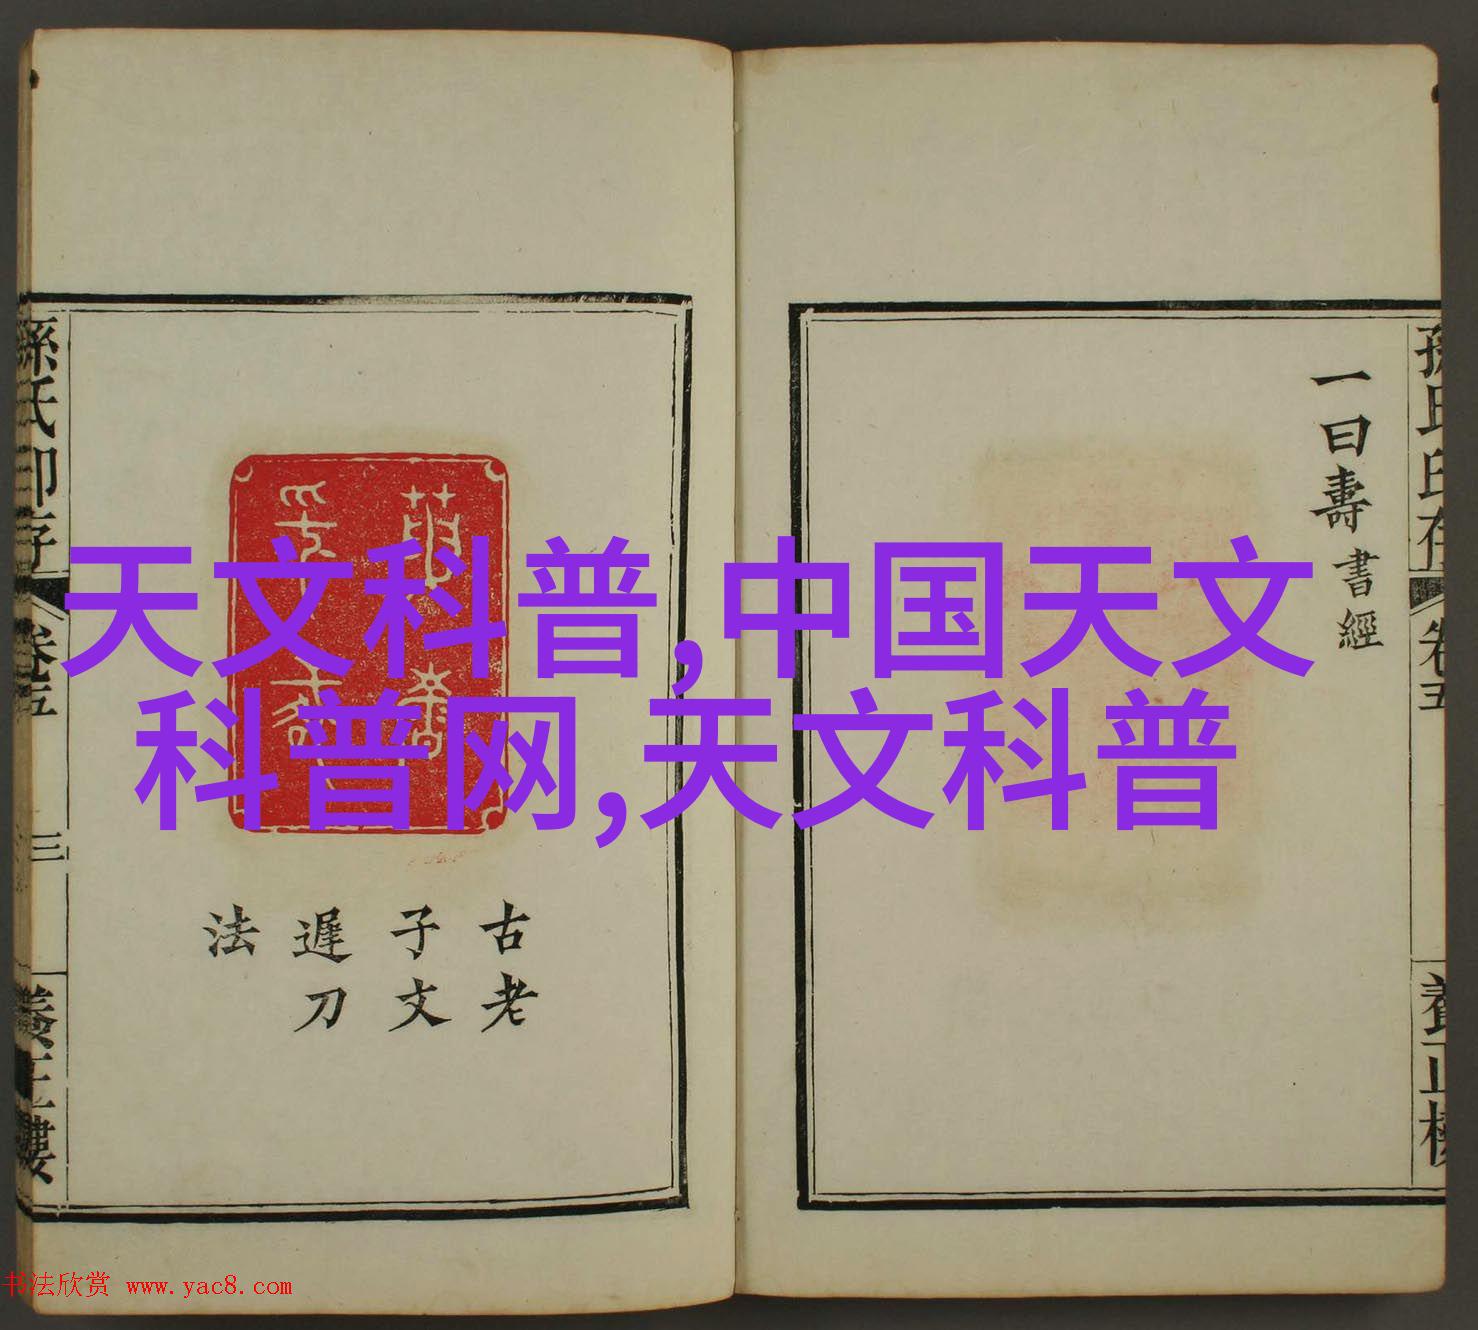 天文科普,中国天文
科普网,天文科普
一曰壽書經
孫氏印存
卷五
養正樓
古老
子文
遲刀
法
孫氏印存
卷五
三
養正樓
书法欣赏 www.yac8.com